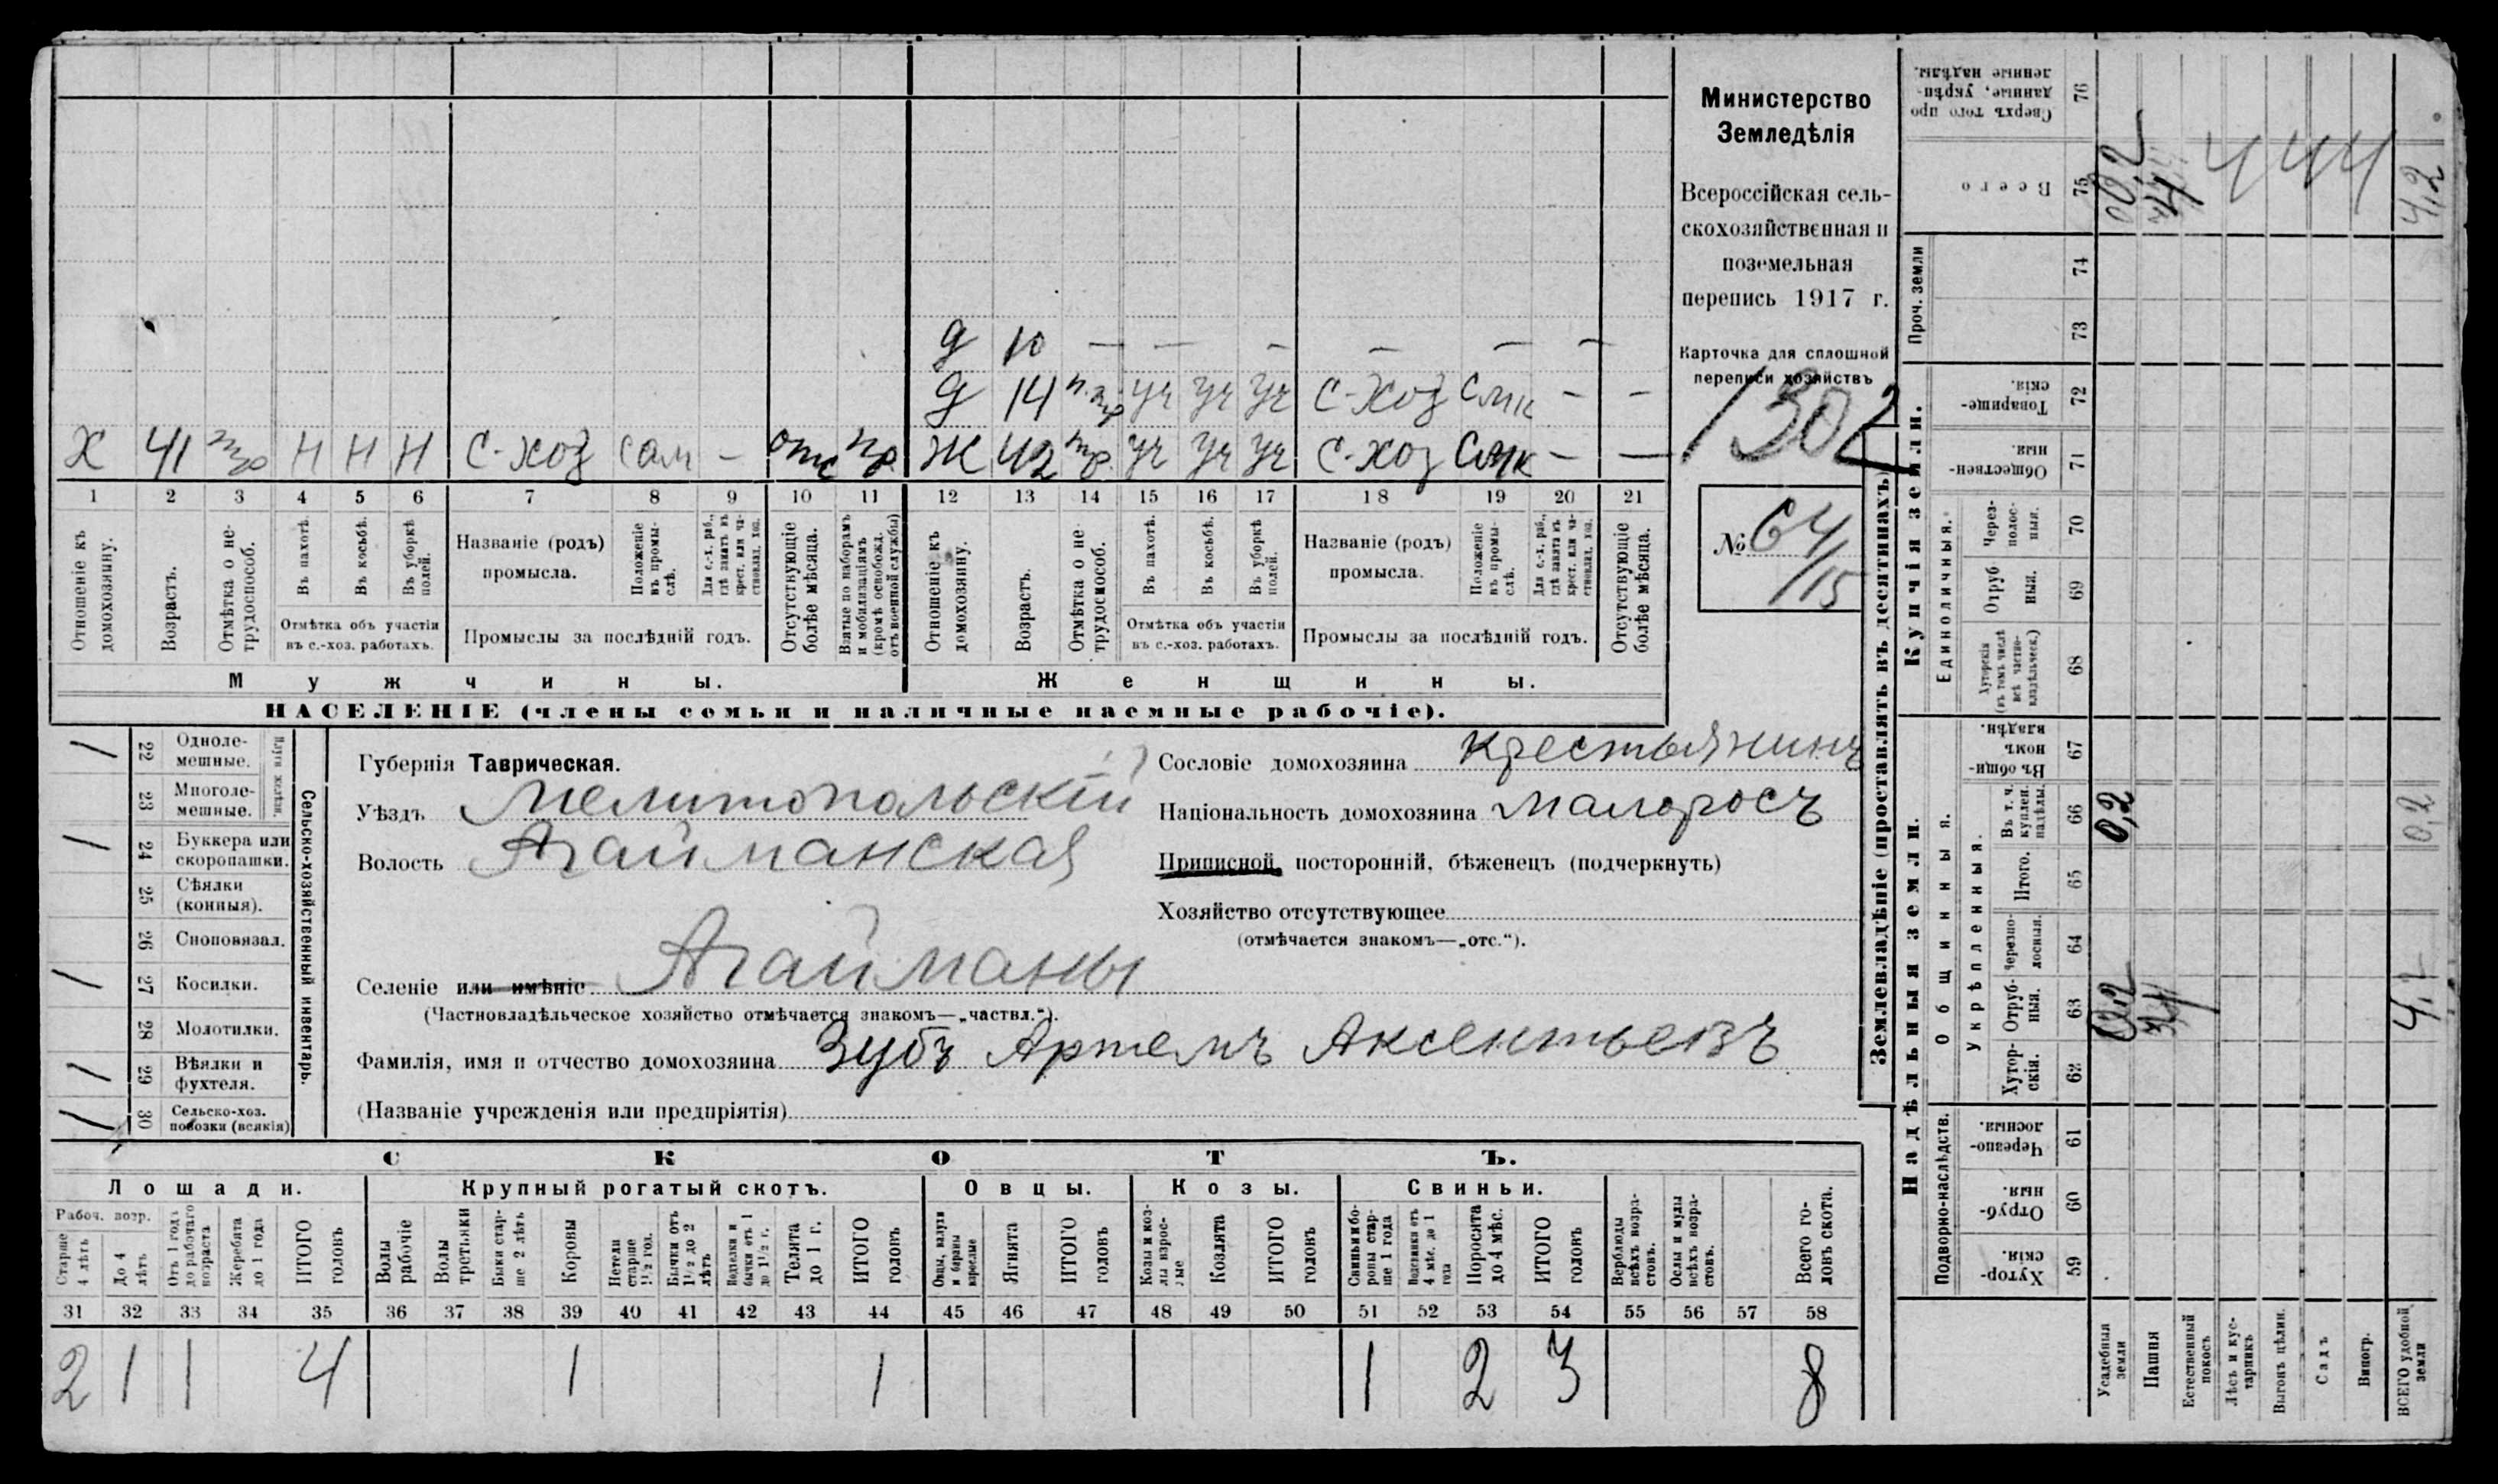 Министерство
Земледѣлія
Всероссійская сель-
скохозяйственная и
поземельная
перепись 1917 г.
Карточка для сплошной
переписи хозяйствъ
1302
№ 64/15
д 10 — — — — — —
д 14 уч уч уч С-хоз смк — —
Х 41 тр Н Н Н С-хоз сам — отс пр Ж 42 тр уч уч уч С-хоз смк — —
1 2 3 4 5 6 7 8 9 10 11 12 13 14 15 16 17 18 19 20 21
Отношеніе къ домохозяину.
Возрастъ.
Отмѣтка о не-трудоспособ.
Въ пахотѣ.
Въ косьбѣ.
Въ уборкѣ полей.
Отмѣтка объ участіи
въ с.-хоз. работахъ.
Названіе (родъ)
промысла.
Положеніе въ промы-слѣ.
Для с.-х. раб., гдѣ занятъ въ крест. или ча-стновлад. хоз.
Промыслы за послѣдній годъ.
Отсутствующіе болѣе мѣсяца.
Взятые по наборамъ и мобилизаціямъ (кромѣ освобожд. отъ военной службы)
Отношеніе къ домохозяину.
Возрастъ.
Отмѣтка о не-трудоспособ.
Въ пахотѣ.
Въ косьбѣ.
Въ уборкѣ полей.
Отмѣтка объ участіи
въ с.-хоз. работахъ.
Названіе (родъ)
промысла.
Положеніе въ промы-слѣ.
Для с.-х. раб., гдѣ занята въ крест. или ча-стновлад. хоз.
Промыслы за послѣдній годъ.
Отсутствующіе болѣе мѣсяца.
Мужчины.
Женщины.
НАСЕЛЕНІЕ (члены семьи и наличные наемные рабочіе).
Сельско-хозяйственный инвентарь.
Плуги желѣзн.
/ 22 Одноле-мешные.
23 Многоле-мешные.
/ 24 Буккера или скоропашки.
25 Сѣялки (конныя).
26 Сноповязал.
/ 27 Косилки.
28 Молотилки.
/ 29 Вѣялки и фухтеля.
/ 30 Сельско-хоз. повозки (всякія)
Губернія Таврическая.
Уѣздъ Мелитопольскій
Волость Агайманская
Селеніе или имѣніе Агайманы
(Частновладѣльческое хозяйство отмѣчается знакомъ—„частвл.“).
Фамилія, имя и отчество домохозяина Зубъ Артемъ Аксентьевъ
(Названіе учрежденія или предпріятія)
Сословіе домохозяина крестьянинъ
Національность домохозяина малоросъ
Приписной, посторонній, бѣженецъ (подчеркнуть)
Хозяйство отсутствующее
(отмѣчается знакомъ—„отс.“).
СКОТЪ.
Лошади.
Крупный рогатый скотъ.
Овцы.
Козы.
Свиньи.
Рабоч. возр.
Старше 4 лѣтъ
До 4 лѣтъ
Отъ 1 года до рабочаго возраста
Жеребята до 1 года
ИТОГО головъ
Волы рабочіе
Волы третьяки
Быки стар-ше 2 лѣтъ
Коровы
Нетели старше 1½ год.
Бычки отъ 1½ до 2 лѣтъ
Подтелки и бычки отъ 1 до 1½ г.
Телята до 1 г.
ИТОГО головъ
Овцы, валухи и бараны взрослые
Ягнята
ИТОГО головъ
Козы и коз-лы взрос-лые
Козлята
ИТОГО головъ
Свиньи и бо-ровы стар-ше 1 года
Подсвинки отъ 4 мѣс. до 1 года
Поросята до 4 мѣс.
ИТОГО головъ
Верблюды всѣхъ возра-стовъ.
Ослы и мулы всѣхъ возра-стовъ.
Всего го-ловъ скота.
31 32 33 34 35 36 37 38 39 40 41 42 43 44 45 46 47 48 49 50 51 52 53 54 55 56 57 58
2 1 1 4 1 1 1 2 3 8
Землевладѣніе (проставлять въ десятинахъ)
Надѣльныя земли.
Купчія земли.
Проч. земли
Подворно-наслѣдств.
Общинныя.
Укрѣпленныя.
Единоличныя.
Сверхъ того про данные, укрѣп-ленные надѣлы. 76
Всего 75
74
73
Товарище-скія. 72
Обществен-ныя. 71
Через-полос-ныя. 70
Отруб-ныя. 69
Хуторскія (въ томъ числѣ всѣ частно-владѣльческ.) 68
Въ общи-номъ владѣн. 67
Въ т. ч. куплен. надѣлы. 66
Итого. 65
Черезпо-лосныя. 64
Отруб-ныя. 63
Хутор-скія. 62
Черезпо-лосныя. 61
Отруб-ныя. 60
Хутор-скія. 59
Усадебныя земли
Пашня
Естественный покосъ
Лѣсъ и кус-тарникъ
Выгонъ цѣлин.
Садъ
Виногр.
ВСЕГО удобной земли
0,2
4
4 4 4
4,2
0,2
0,2
4,2